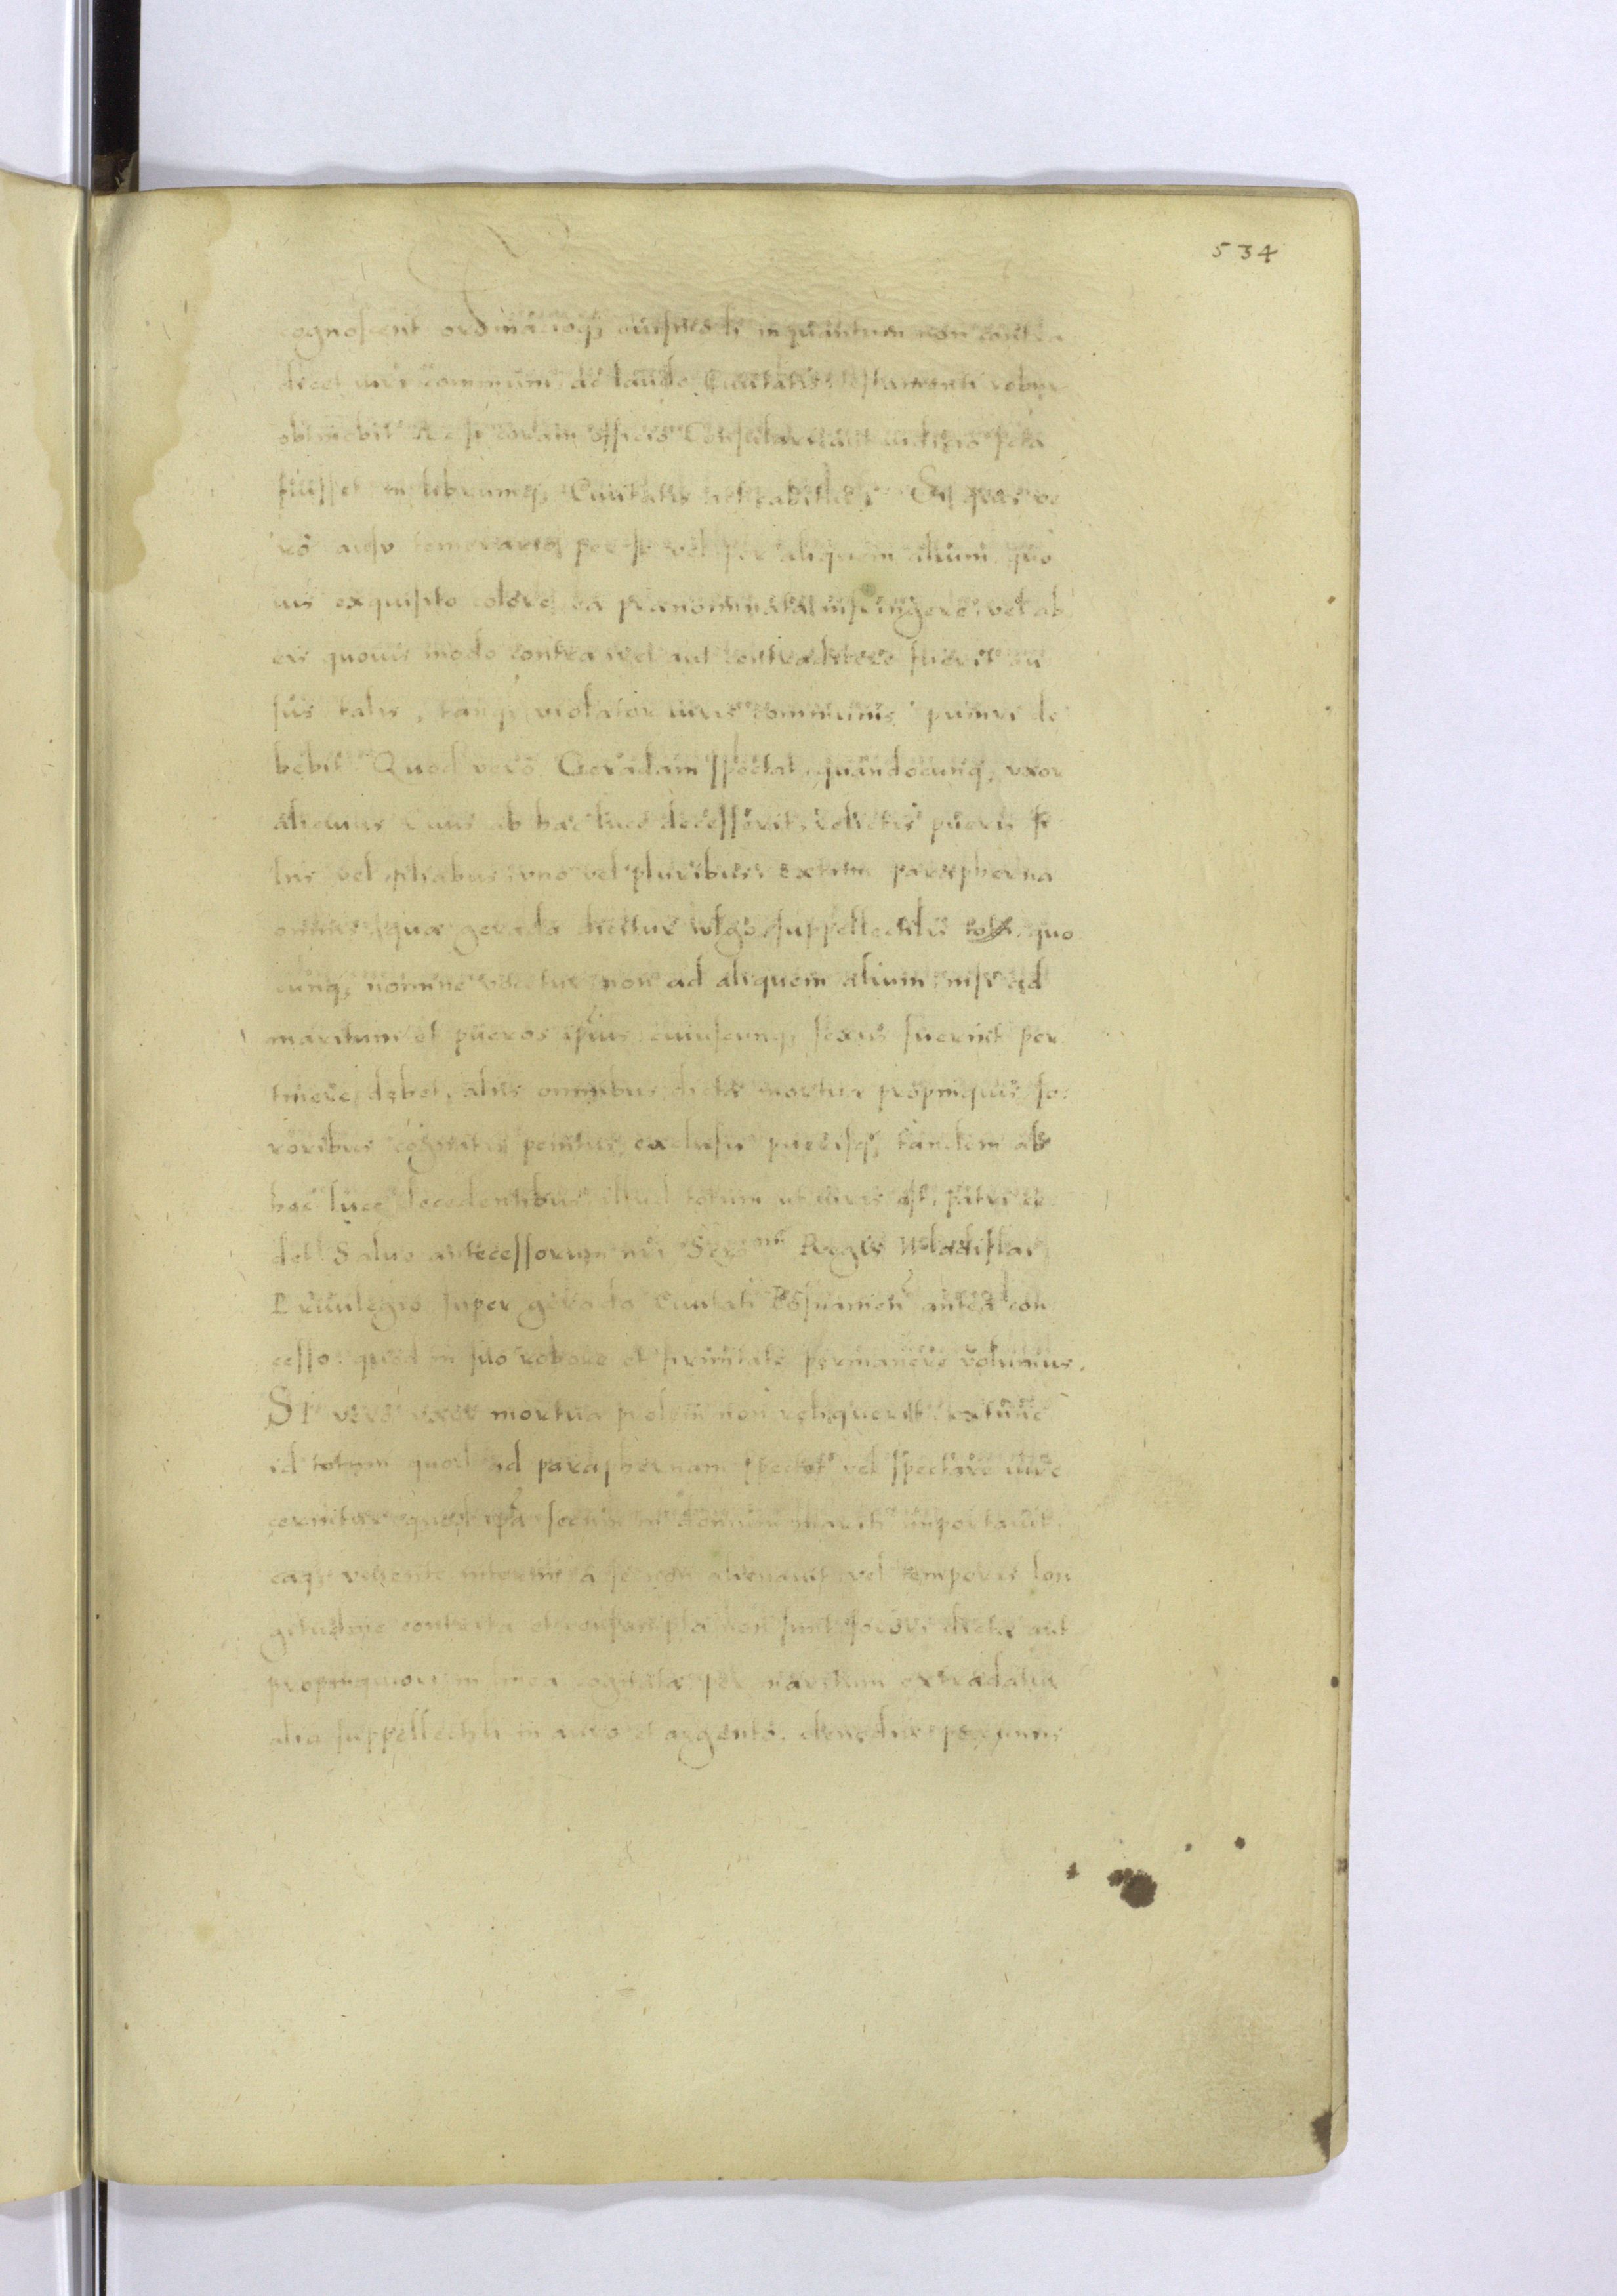 534
cognoscent ordinacioq; inquantum non contra
dicet iuri communi de laudo Ciuitatis testamenti robur
obtinebit Ac si coram officio Consulari aut iudicio
fuisset in librumq; Ciuitatis Si quis ve
ro ausu temerario per se vel per aliquem alium quo
uis exquisito colore ea prænominata infringere vel ab
eis quouis modo contra ire aut contradicere fuerit au
sus talis, tanq; violator iuris communis puniri de
bebit Quod vero Geradam spectat, quandocunq; vxor
alicuius ciuis ab hac luce decesserit, relictis pueris fi
liis vel filiabus vno vel pluribus extunc parapherna
omnis quæ gerada dicitur wlgo suppellectilis tota quo
cunq; nomine vocetur non ad aliquem alium nisi ad
maritum et pueros ipius cuiuscunq; sexus fuerint per
tinere debet, aliis omnibus dictæ mortuæ propinquis so
roribus cognatis penitus exclusis puerisq; tandem ab
hac luce decedentibus illud totum ut iuris est, patri ce
det Salvo antecessorum nri Sermi Regis Wladislai
Priuilegio super gerada Ciuitati Posnanien antea con
cesso quod in suo robore et firmitate permanere volumus.
Si vero vxor mortua prolem non reliquerit extunc
id totum quod ad paraphernam spectat vel spectare iure
cernitur quod ipa secum in domum mariti importauit
eaq; viuente interim a se non alienauit vel temporis lon
gitudine contrita et consumpta non sunt sorori dictæ aut
propinquiori in linea cognata per maritum extradatur
alia suppellectili in auro et argento. clenodiis pecuniis